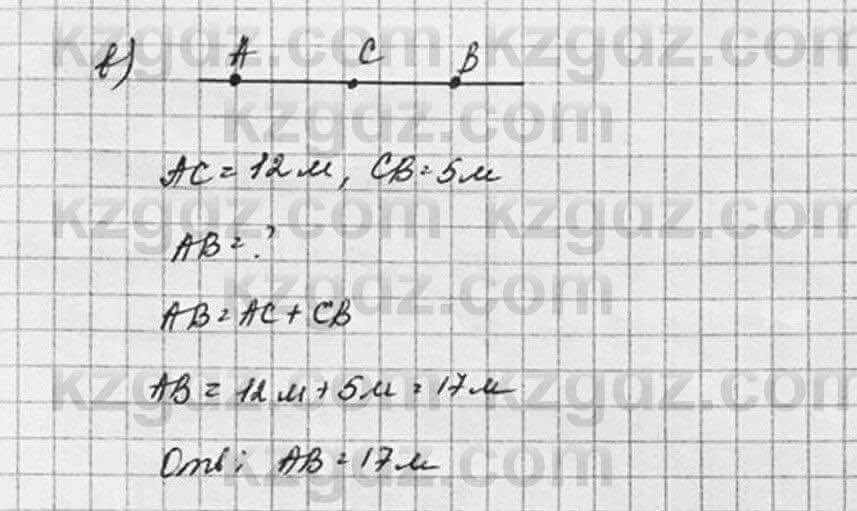 в) A C B
AC = 12 м, CB = 5 м
AB = ?
AB = AC + CB
AB = 12 м + 5 м = 17 м
Отв: AB = 17 м
kzgdz.com kzgdz.com
kzgdz.com
kzgdz.com kzgdz.com
kzgdz.com
kzgdz.com kzgdz.com
kzgdz.com